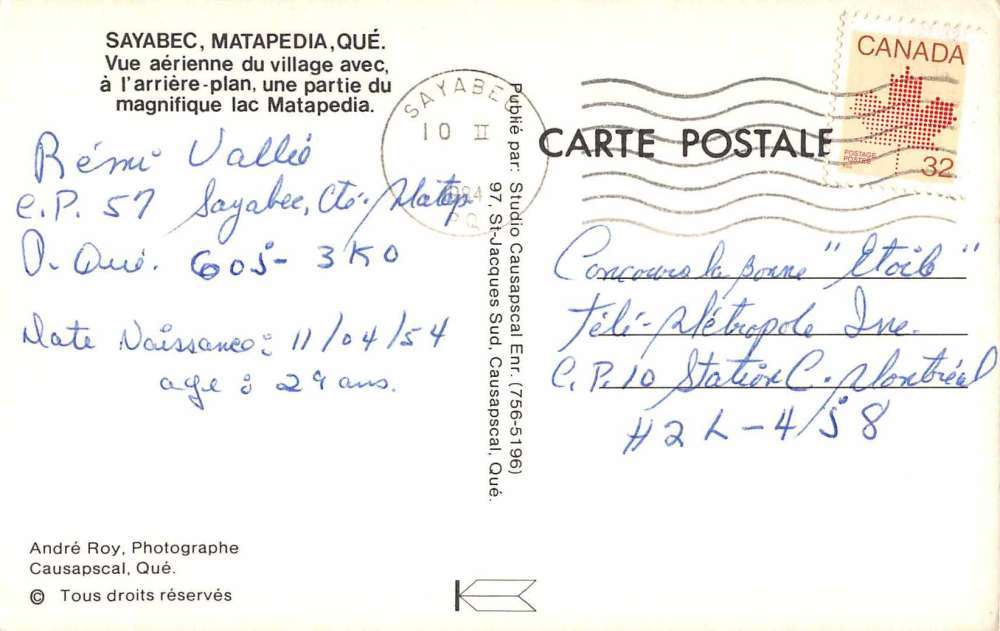 SAYABEC, MATAPEDIA, QUÉ.
Vue aérienne du village avec,
à l'arrière-plan, une partie du
magnifique lac Matapedia.
Rémi Vallée
C.P. 57 Sayabec, Cté. Matap
P. Qué. G0J-3K0
Date Naissance: 11/04/54
age: 29 ans.
André Roy, Photographe
Causapscal, Qué.
© Tous droits réservés
Publié par: Studio Causapscal Enr. (756-5196)
97, St-Jacques Sud, Causapscal, Qué.
SAYABEC
10 II
1984
P.Q.
CARTE POSTALE
CANADA
POSTAGE
POSTES
32
Concours la bonne "Etoile"
Télé-Métropole Inc.
C.P. 10 Station C. Montréal
H2L-4J8